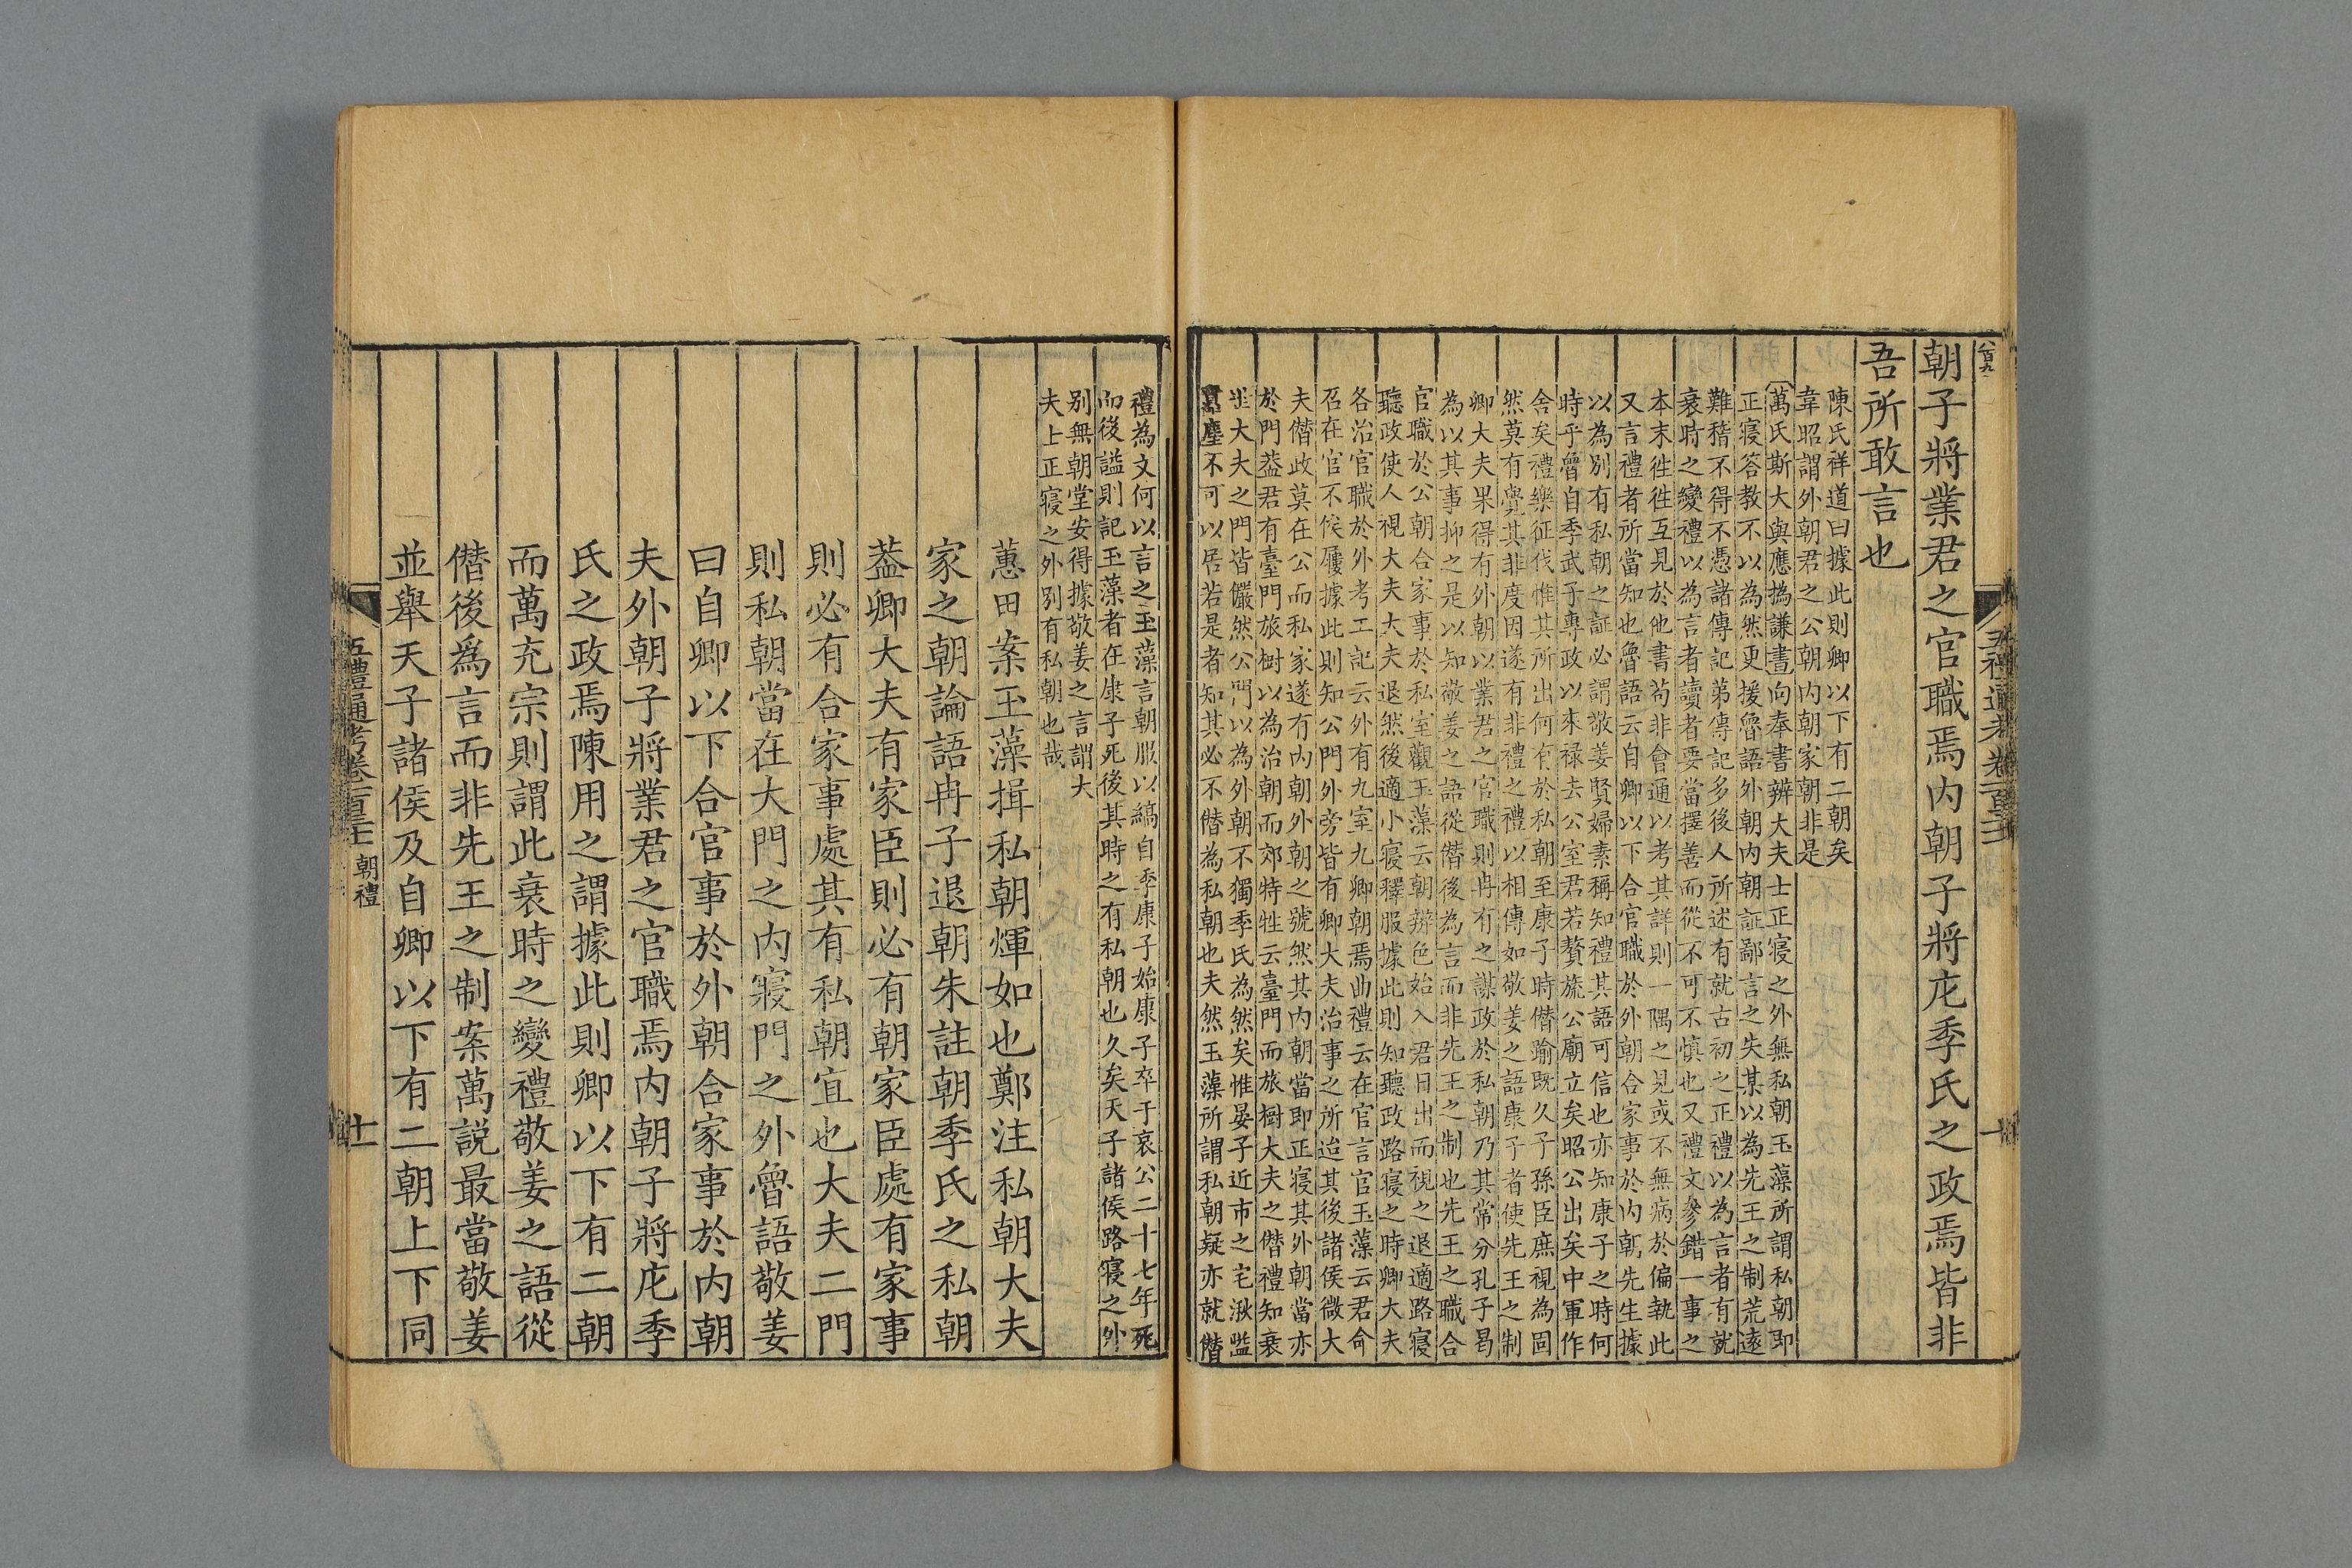 朝子將業君之官職焉內朝子將庀季氏之政焉皆非
吾所敢言也
陳氏祥道曰據此則卿以下有二朝矣
韋昭謂外朝君之公朝內朝家朝非是
萬氏斯大與應撝謙書向奉書辨大夫士正寢之外無私朝玉藻所謂私朝即
正寢答教不以為然更援魯語外朝內朝証鄙言之失某以為先王之制荒遠
難稽不得不憑諸傳記第傳記多後人所述有就古初之正禮以為言者有就
衰時之變禮以為言者讀者要當擇善而從不可不慎也又禮文參錯一事之
本末徃徃互見於他書茍非會通以考其詳則一隅之見或不無病於偏執此
又言禮者所當知也魯語云自卿以下合官職於外朝合家事於內朝先生據
以為別有私朝之証必謂敬姜賢婦素稱知禮其語可信也亦知康子之時何
時乎魯自季武子專政以來祿去公室君若贅旒公廟立矣昭公出矣中軍作
舍矣禮樂征伐惟其所出何有於私朝至康子時僭踰既久子孫臣庶視為固
然莫有覺其非度因遂有非禮之禮以相傳如敬姜之語康子者使先王之制
卿大夫果得有外朝以業君之官職則冉有之謀政於私朝乃其常分孔子曷
為以其事抑之是以知敬姜之語從僭後為言而非先王之制也先王之職合
官職於公朝合家事於私室觀玉藻云朝辨色始入君日出而視之退適路寢
聽政使人視大夫大夫退然後適小寢釋服據此則知聽政路寢之時卿大夫
各治官職於外考工記云外有九室九卿朝焉曲禮云在官言官玉藻云君命
召在官不俟屨據此則知公門外旁皆有卿大夫治事之所迨其後諸侯微大
夫僭政莫在公而私家遂有內朝外朝之號然其內朝當即正寢其外朝當亦
於門葢君有臺門旅樹以為治朝而郊特牲云臺門而旅樹大夫之僭禮知衰
世大夫之門皆儼然公門以為外朝不獨季氏為然矣惟晏子近市之宅湫隘
囂塵不可以居若是者知其必不僭為私朝也夫然玉藻所謂私朝疑亦就僭
禮為文何以言之玉藻言朝服以縞自季康子始康子卒于哀公二十七年死
而後謚則記玉藻者在康子死後其時之有私朝也久矣天子諸侯路寢之外
別無朝堂安得據敬姜之言謂大
夫士正寢之外別有私朝也哉
蕙田案玉藻揖私朝煇如也鄭注私朝大夫
家之朝論語冉子退朝朱註朝季氏之私朝
葢卿大夫有家臣則必有朝家臣處有家事
則必有合家事處其有私朝宜也大夫二門
則私朝當在大門之內寢門之外魯語敬姜
曰自卿以下合官事於外朝合家事於內朝
夫外朝子將業君之官職焉內朝子將庀季
氏之政焉陳用之謂據此則卿以下有二朝
而萬充宗則謂此衰時之變禮敬姜之語從
僭後爲言而非先王之制案萬説最當敬姜
並舉天子諸侯及自卿以下有二朝上下同
五禮通考卷一百三十二 朝禮
十一